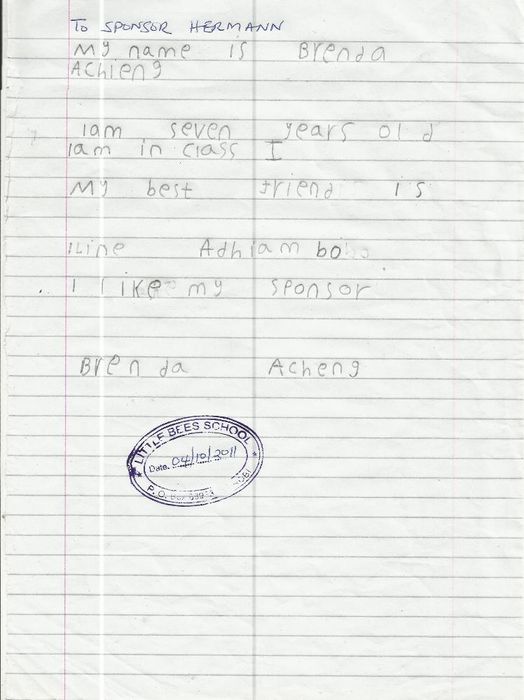 To SPONSOR HERMANN
My name is Brenda
Achieng
Iam seven years old
Iam in class I
My best friend is
Iline Adhiambo
I like my sponsor
Brenda Acheng
LITTLE BEES SCHOOL
Date. 04/10/2011
P. O. Box